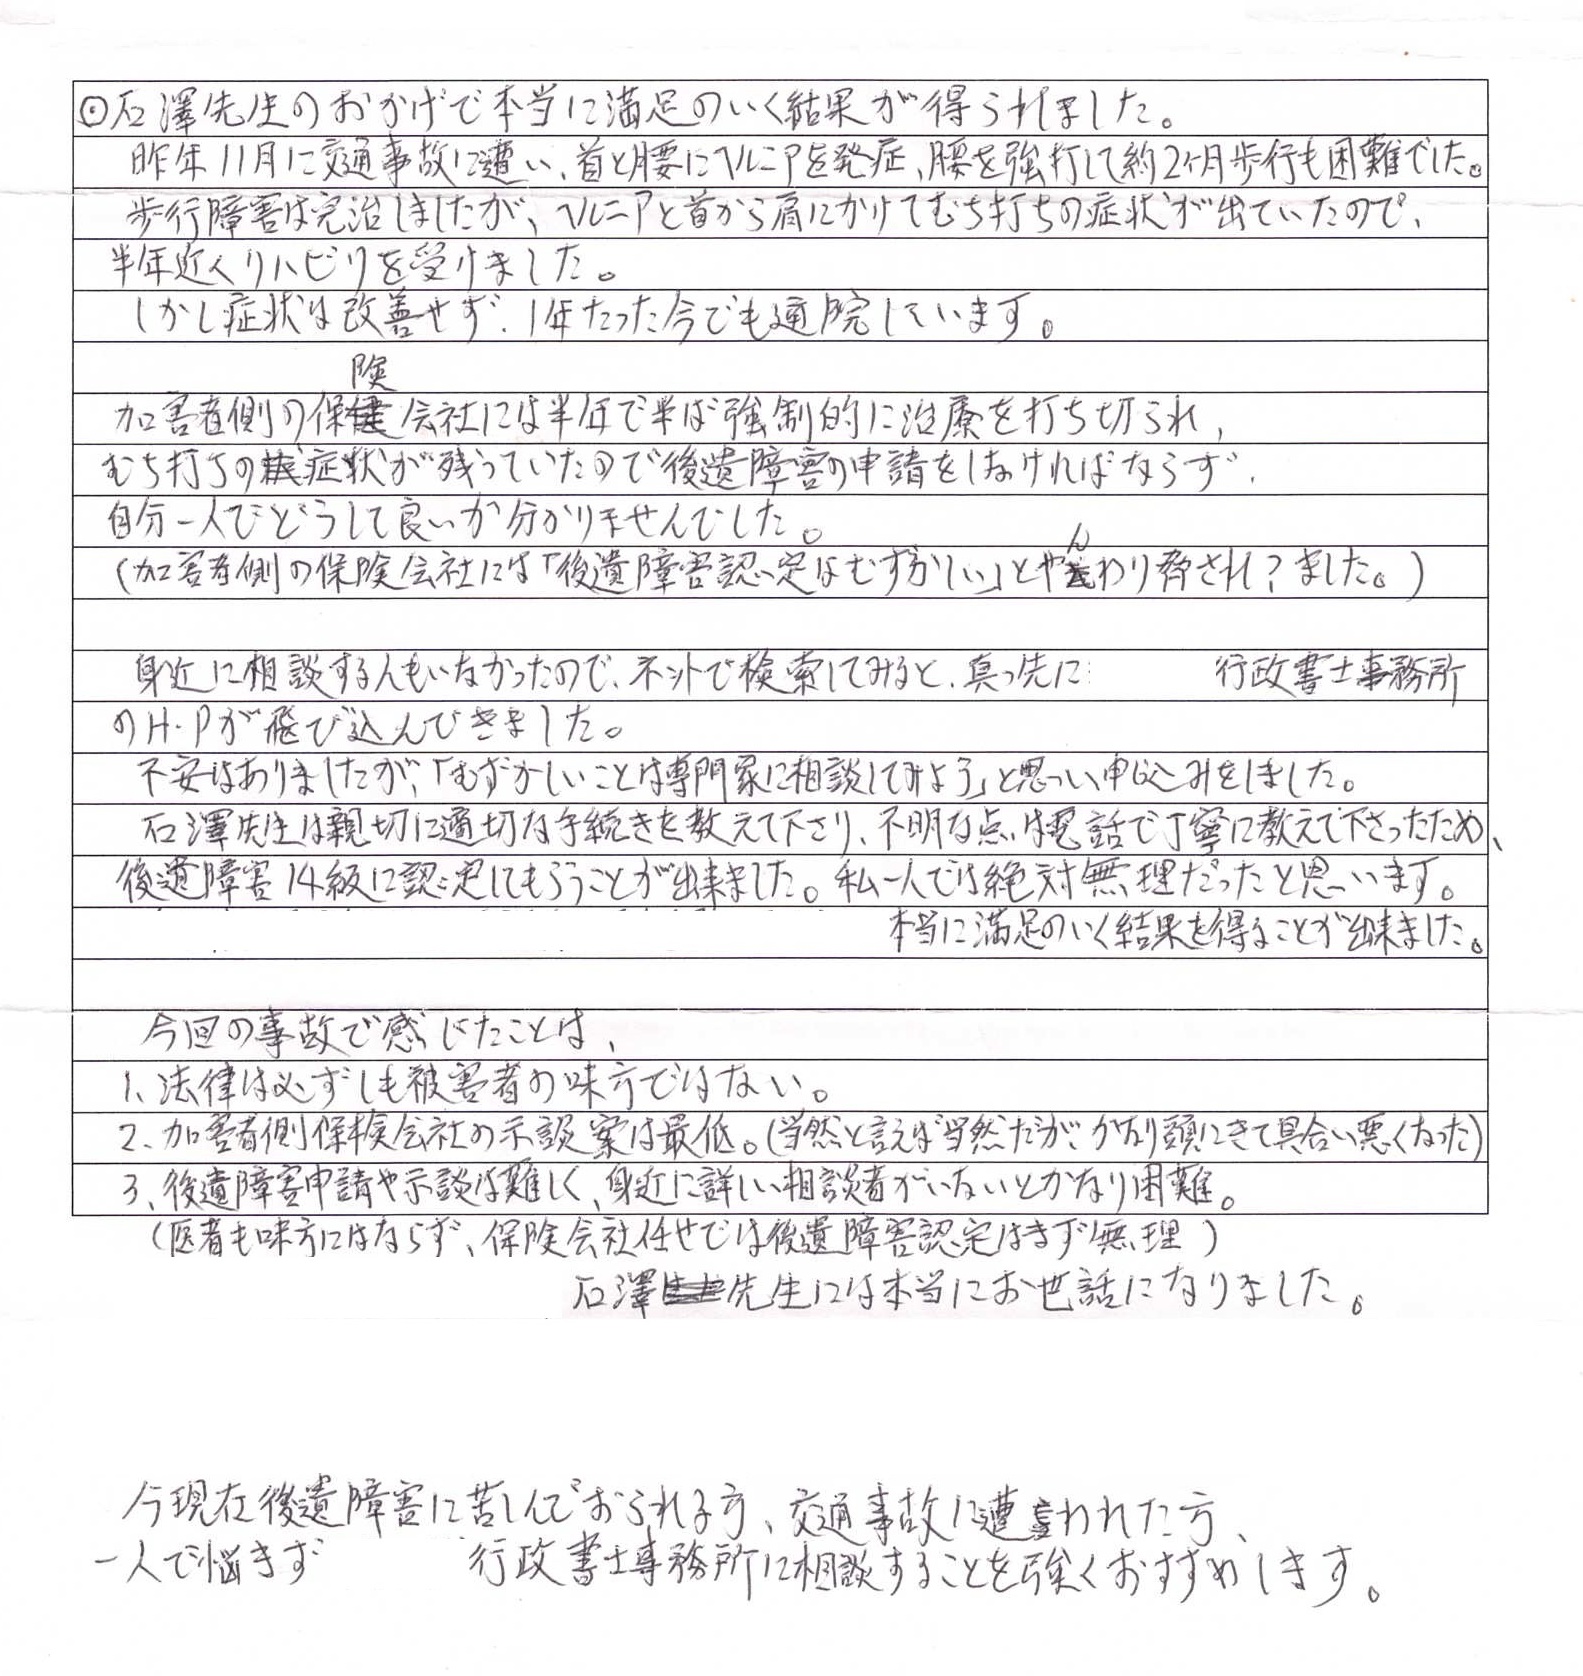 ◎石澤先生のおかげで本当に満足のいく結果が得られました。
昨年11月に交通事故に遭い、首と腰にヘルニアを発症、腰を強打して約2ヶ月歩行も困難でした。
歩行障害は完治しましたが、ヘルニアと首から肩にかけてむち打ちの症状が出ていたので、
半年近くリハビリを受けました。
しかし症状は改善せず、1年たった今でも通院しています。
険
加害者側の保会社には半年で半ば強制的に治療を打ち切られ、
むち打ちの症状が残っていたので後遺障害の申請をしなければならず、
自分一人でどうして良いか分かりませんでした。
(加害者側の保険会社には「後遺障害認定はむずかしい」とやんわり脅され?ました。)
身近に相談する人もいなかったので、ネットで検索してみると、真っ先に 行政書士事務所
のH・Pが飛び込んできました。
不安はありましたが、「むずかしいことは専門家に相談してみよう」と思い申し込みをしました。
石澤先生は親切に適切な手続きを教えて下さり、不明な点は電話で丁寧に教えて下さったため、
後遺障害14級に認定してもらうことが出来ました。私一人では絶対無理だったと思います。
本当に満足のいく結果を得ることが出来ました。
今回の事故で感じたことは、
1、法律は必ずしも被害者の味方ではない。
2、加害者側保険会社の示談案は最低。(当然と言えば当然だが、かなり頭にきて具合い悪くなった)
3、後遺障害申請や示談は難しく、身近に詳しい相談者がいないとかなり困難。
(医者も味方にはならず、保険会社任せでは後遺障害認定はまず無理)
石澤先生には本当にお世話になりました。
今現在後遺障害に苦しんでおられる方、交通事故に遭われた方、
一人で悩まず 行政書士事務所に相談することを強くおすすめします。